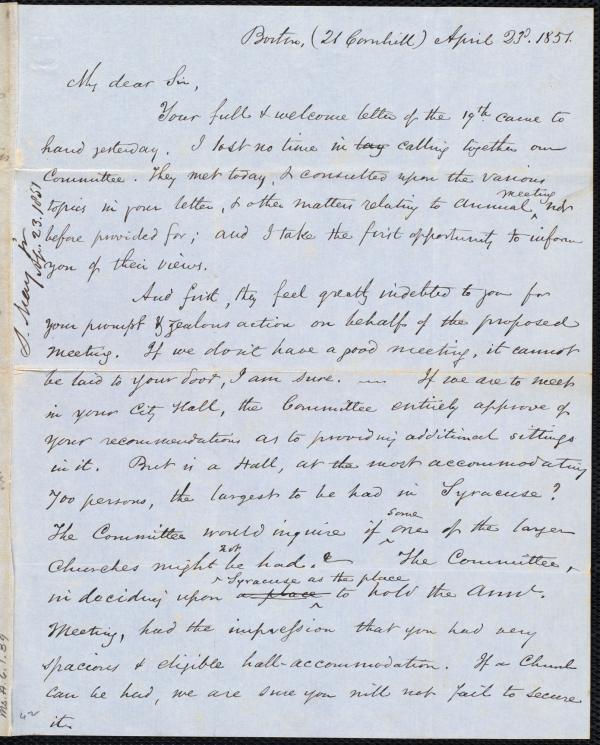 Boston, (21 Cornhill) April 23d. 1851.
My dear Sir,
Your full & welcome letter of the 19th came to
hand yesterday. I lost no time in lay calling together our
Committee. They met today, & consulted upon the various
topics in your letter, & other matters relating to annual meeting, not
before provided for; and I take the first opportunity to inform
you of their views.
And first, they feel greatly indebted to you for
your prompt & zealous action on behalf of the proposed
meeting. If we don't have a good meeting, it cannot
be laid to your door, I am sure. — If we are to meet
in your City Hall, the Committee entirely approve of
your recommendations as to providing additional sittings
in it. But is a Hall, at the most accommodating
700 persons, the largest to be had in Syracuse?
The Committee would inquire if some one of the larger
Churches might not be had. & The Committee,
in deciding upon a place Syracuse as the place to hold the Annl.
Meeting, had the impression that you had very
spacious & eligible hall-accommodation. If a Church
can be had, we are sure you will not fail to secure
it.
S. May Jr
Apr. 23. 1851
Ms. A. 6. 1. 39